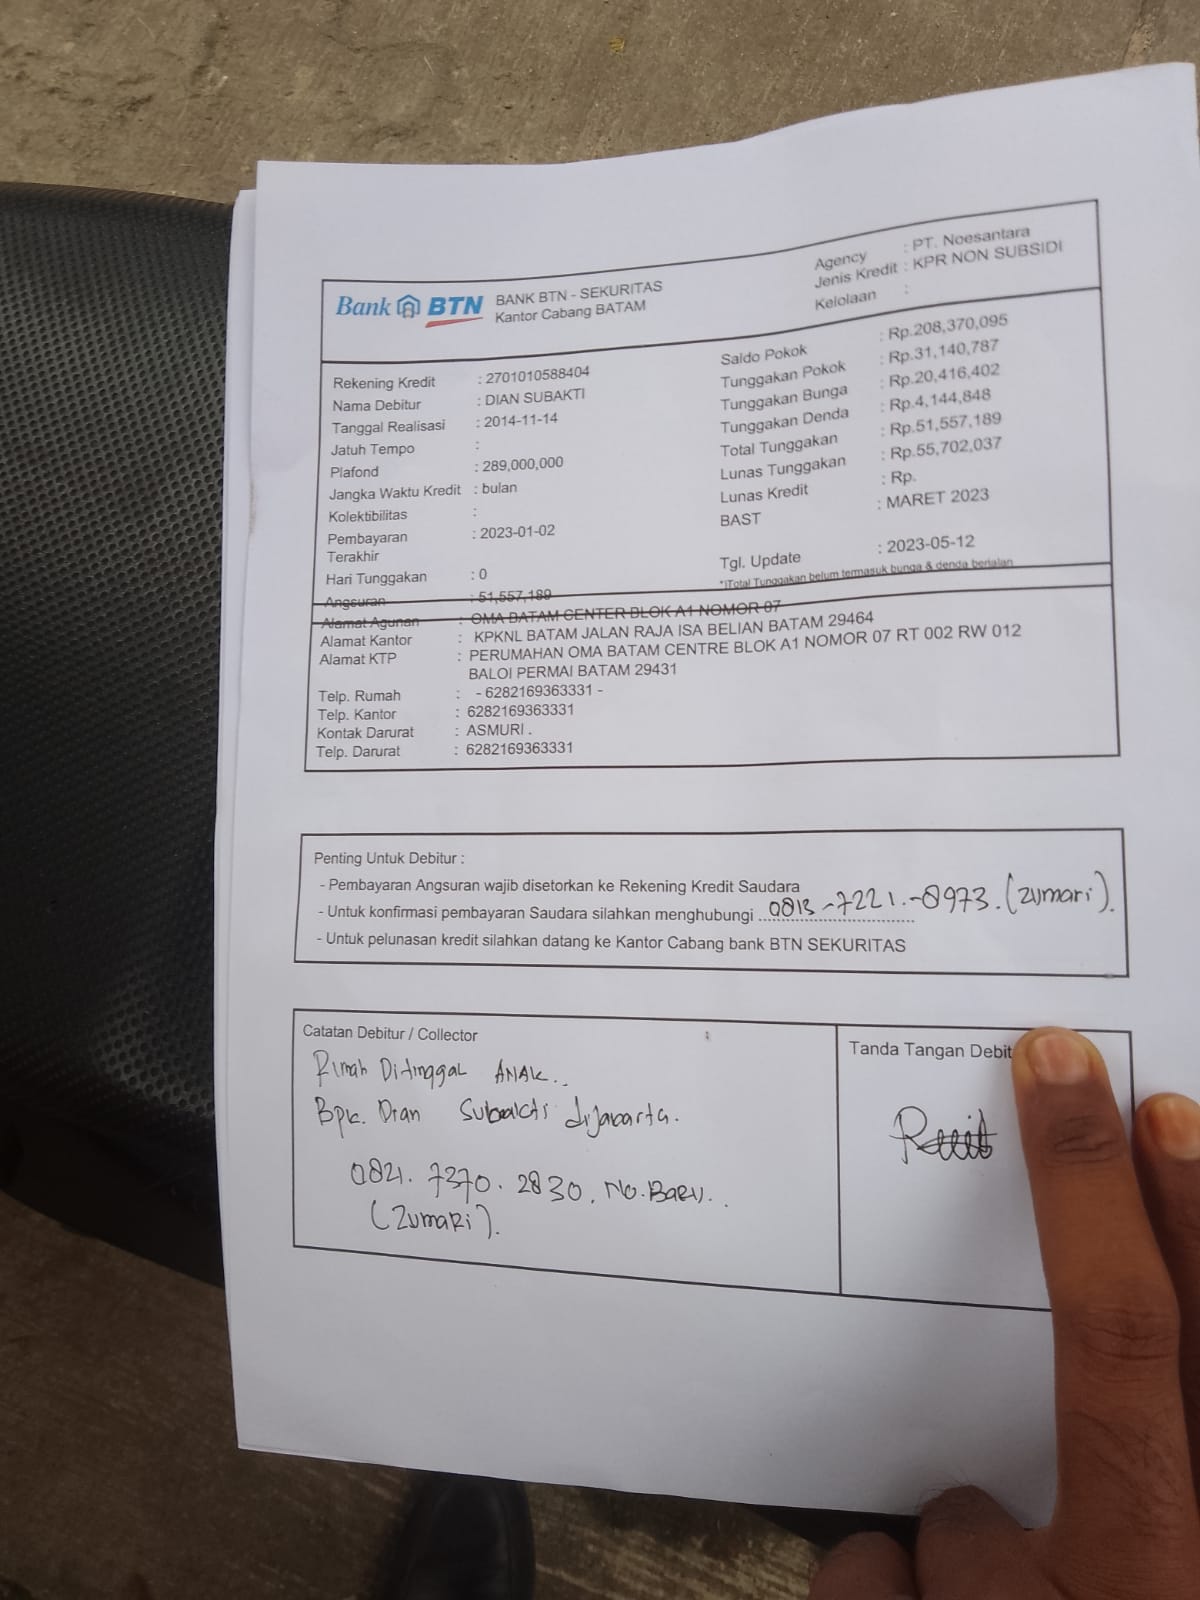 Bank BTN
BANK BTN - SEKURITAS
Kantor Cabang BATAM
Agency : PT. Noesantara
Jenis Kredit : KPR NON SUBSIDI
Kelolaan :
Rekening Kredit : 2701010588404
Nama Debitur : DIAN SUBAKTI
Tanggal Realisasi : 2014-11-14
Jatuh Tempo :
Plafond : 289,000,000
Jangka Waktu Kredit : bulan
Kolektibilitas :
Pembayaran : 2023-01-02
Terakhir
Hari Tunggakan : 0
Angsuran : 51,557,189
Saldo Pokok : Rp.208,370,095
Tunggakan Pokok : Rp.31,140,787
Tunggakan Bunga : Rp.20,416,402
Tunggakan Denda : Rp.4,144,848
Total Tunggakan : Rp.51,557,189
Lunas Tunggakan : Rp.55,702,037
Lunas Kredit : Rp.
BAST : MARET 2023
Tgl. Update : 2023-05-12
*)Total Tunggakan belum termasuk bunga & denda berjalan
Alamat Agunan : OMA BATAM CENTER BLOK A1 NOMOR 07
Alamat Kantor : KPKNL BATAM JALAN RAJA ISA BELIAN BATAM 29464
Alamat KTP : PERUMAHAN OMA BATAM CENTRE BLOK A1 NOMOR 07 RT 002 RW 012
BALOI PERMAI BATAM 29431
Telp. Rumah : - 6282169363331 -
Telp. Kantor : 6282169363331
Kontak Darurat : ASMURI .
Telp. Darurat : 6282169363331
Penting Untuk Debitur :
- Pembayaran Angsuran wajib disetorkan ke Rekening Kredit Saudara
- Untuk konfirmasi pembayaran Saudara silahkan menghubungi 0813-7221.-8973.(Zumari).
- Untuk pelunasan kredit silahkan datang ke Kantor Cabang bank BTN SEKURITAS
Catatan Debitur / Collector
Ditinggal ANAK..
Bpk. Dian Subakti
0821. 7370. 2830. No.Baru..
(Zumari).
Tanda Tangan Debit